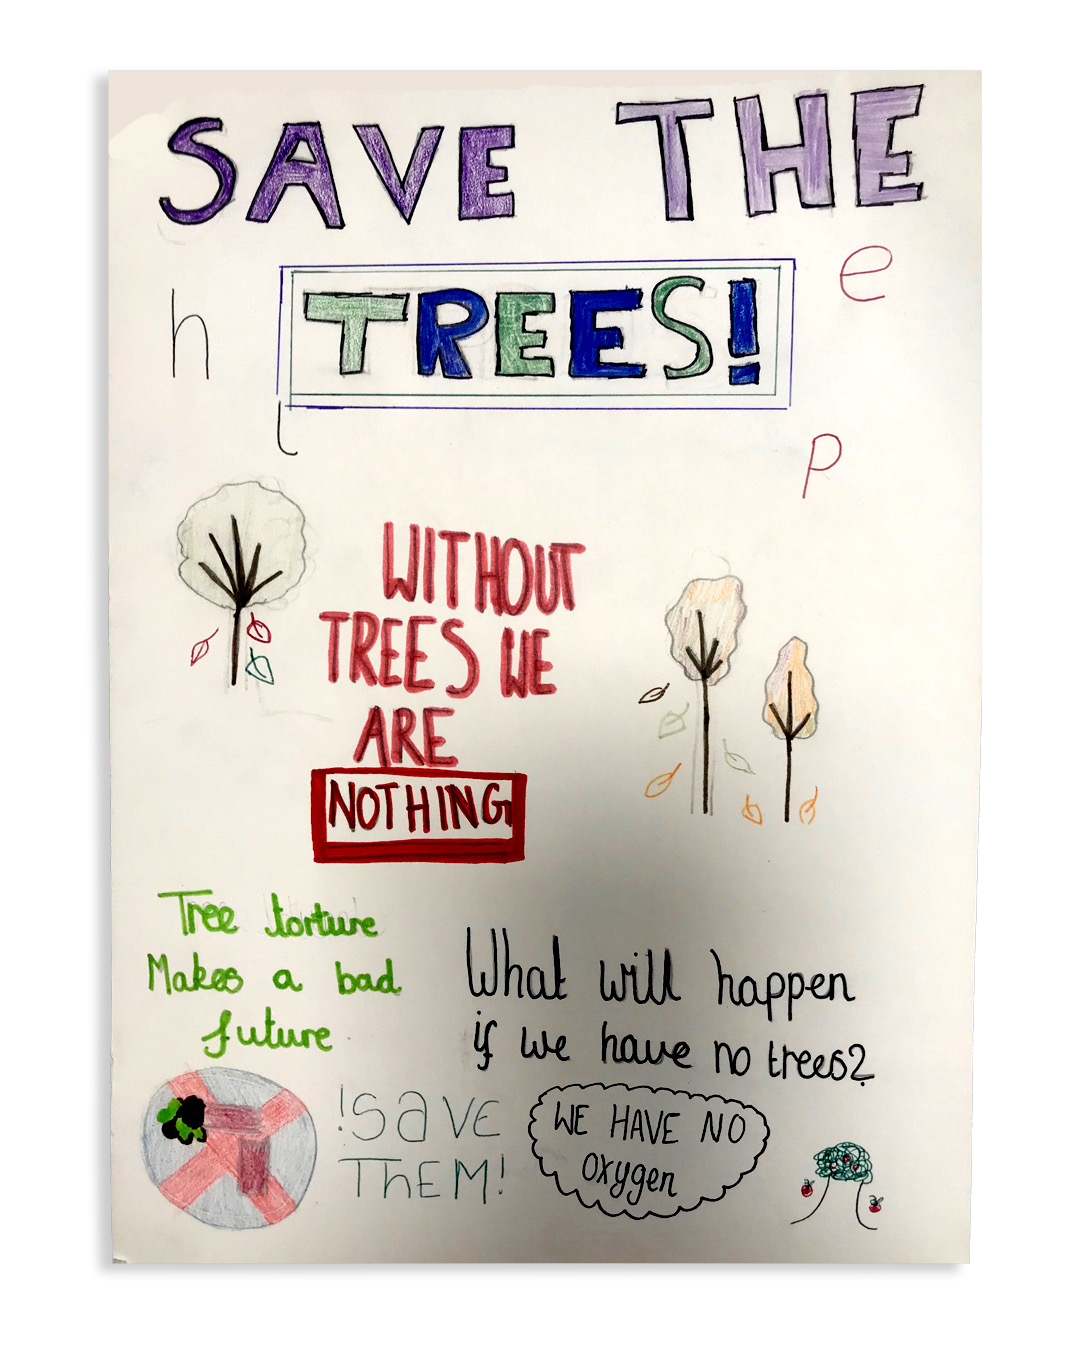 SAVE THE
e
h
TREES!
l
p
WITHOUT
TREES WE
ARE
NOTHING
Tree torture
Makes a bad
future
What will happen
if we have no trees?
!SAVE
ThEM!
WE HAVE NO
Oxygen